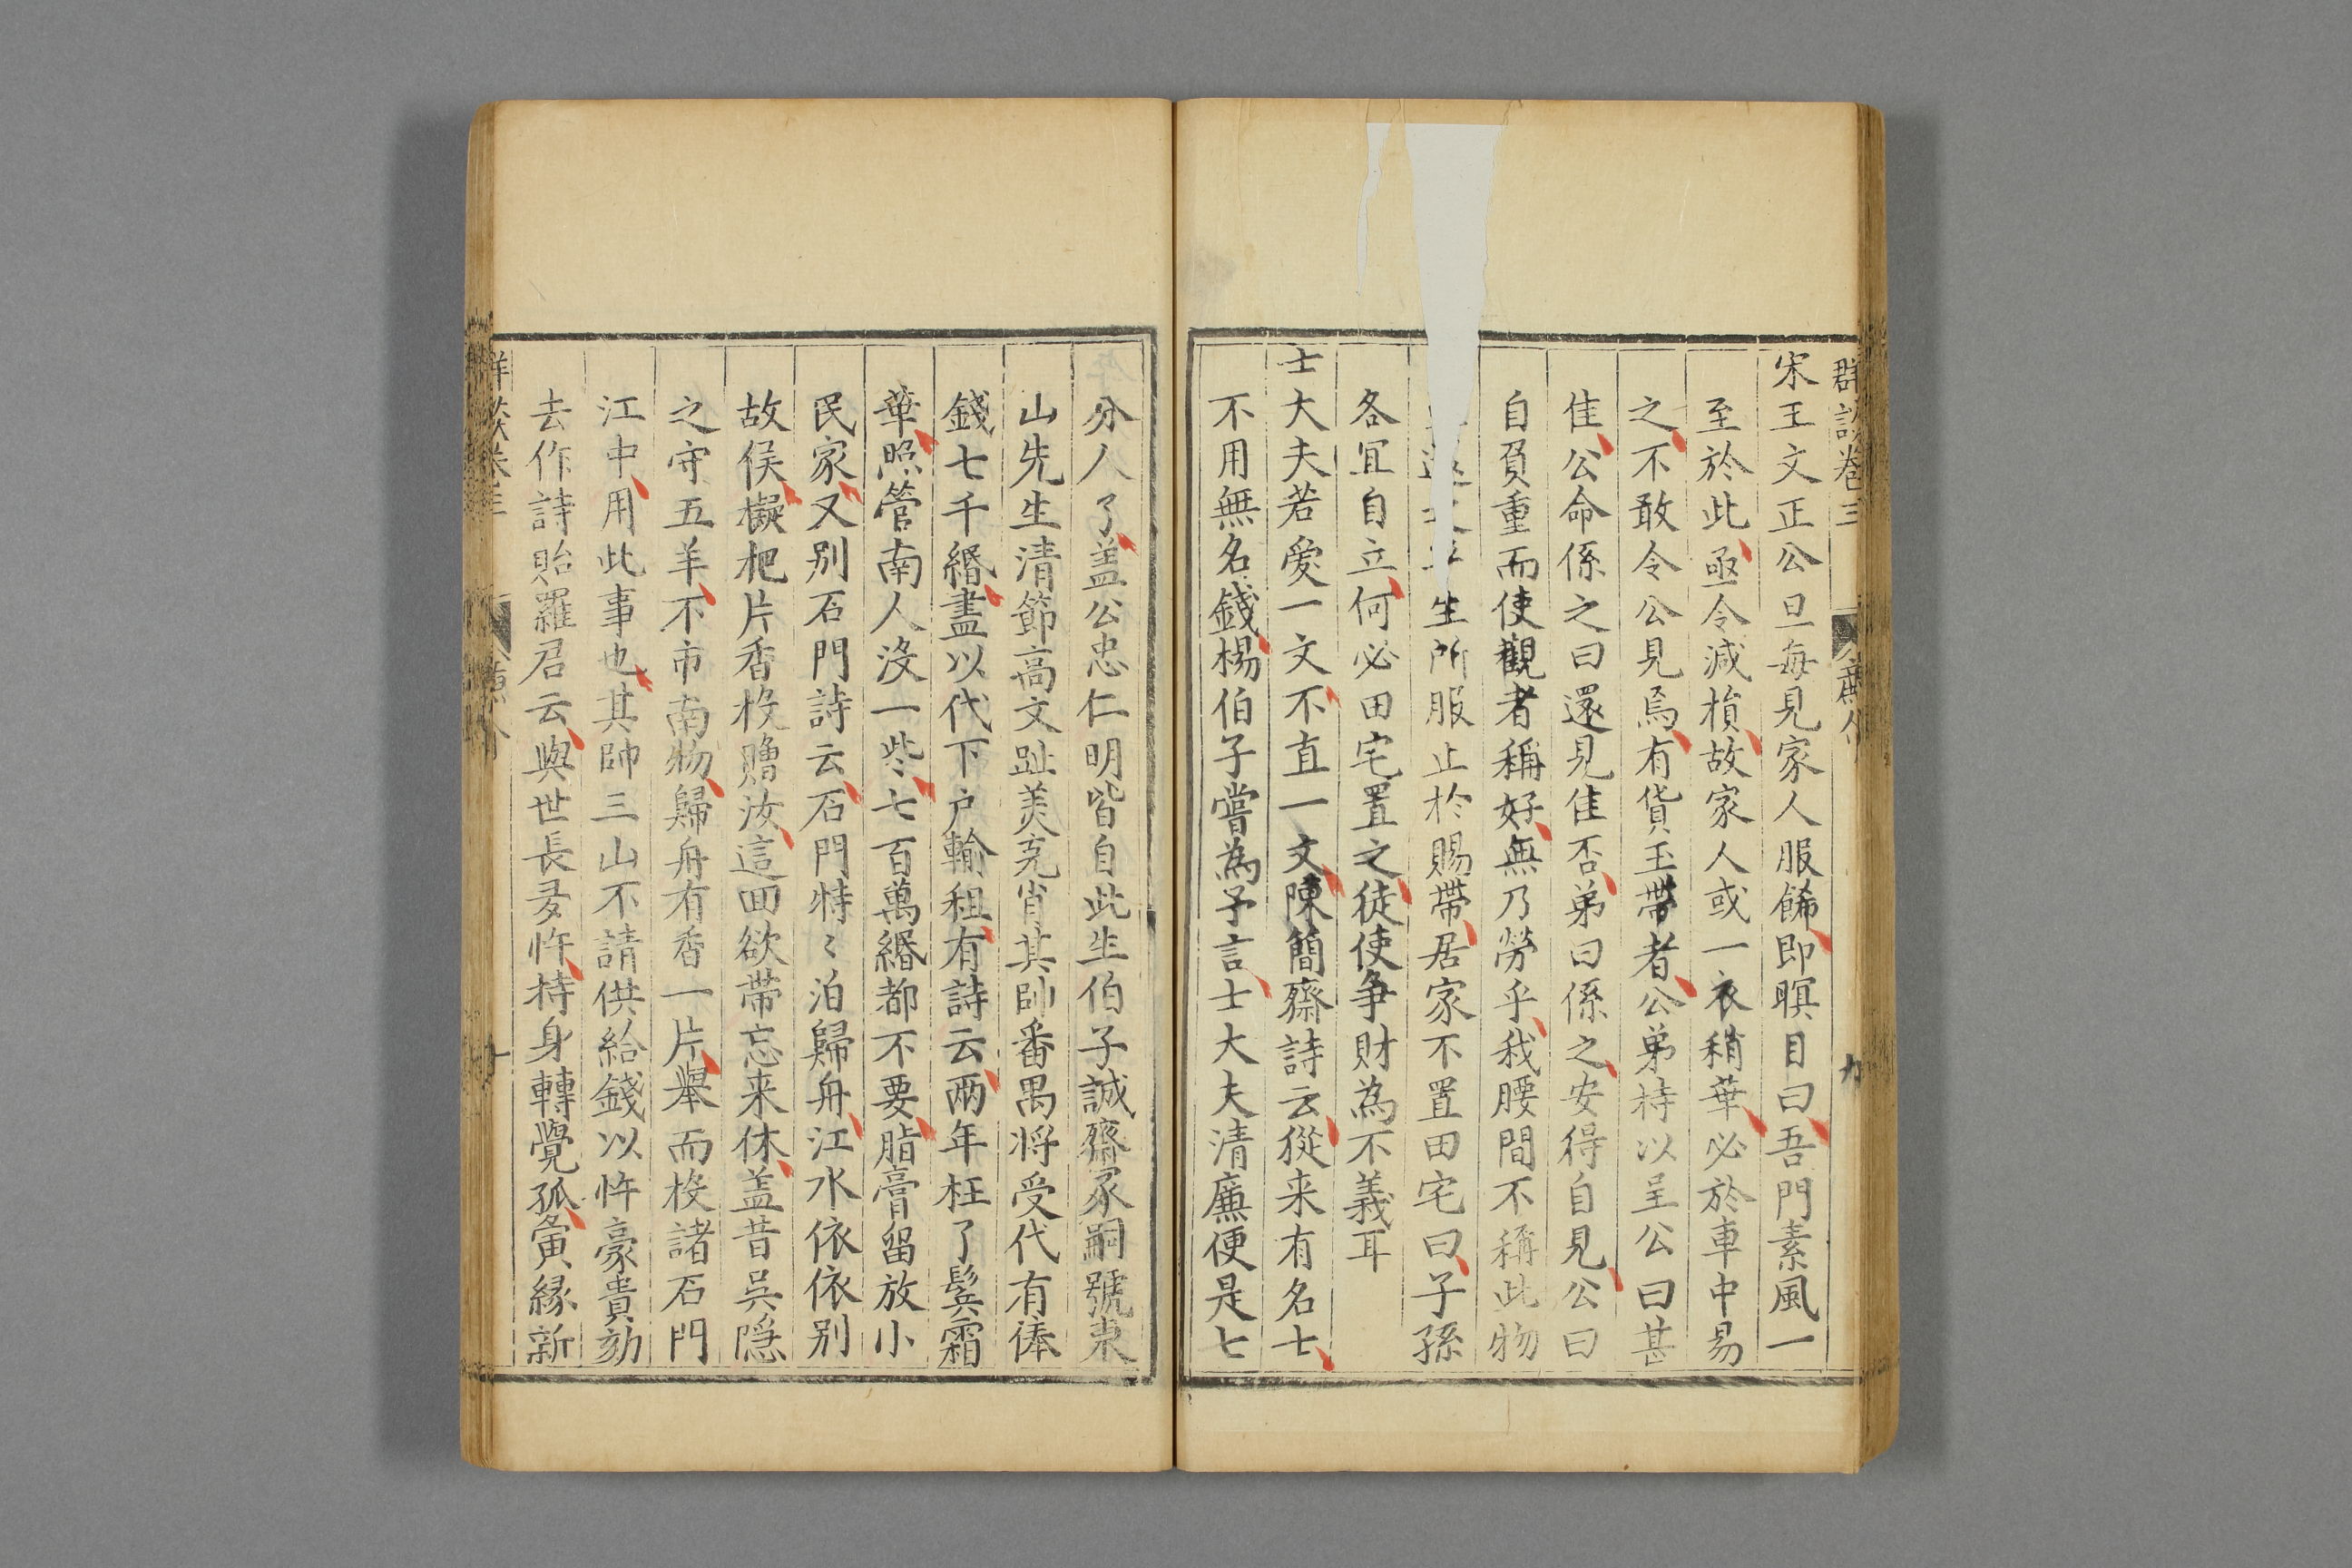 群談卷三
九
宋王文正公旦每見家人服餙即瞑目曰吾門素風一
至於此亟令減損故家人或一衣稍華必於車中易
之不敢令公見焉有貨玉帶者公弟持以呈公曰甚
佳公命係之曰還見佳否弟曰係之安得自見公曰
自負重而使觀者稱好無乃勞乎我腰間不稱此物
生所服止於賜帶居家不置田宅曰子孫
各冝自立何必田宅置之徒使争財為不義耳
士大夫若愛一文不直一文陳簡齋詩云從来有名士
不用無名錢楊伯子嘗為予言士大夫清廉便是七
分人了盖公忠仁明皆自此生伯子誠齋冢嗣號東
山先生清節高文趾羙克肖其帥番禺将受代有俸
錢七千緡盡以代下户輸租有詩云两年枉了鬂霜
華照管南人沒一些七百萬緡都不要脂膏留放小
民家又别石門詩云石門特〻泊歸舟江水依依别
故侯擬把片香投贈汝這回欲帶忘来休盖昔吳隐
之守五羊不市南物歸舟有香一片舉而投諸石門
江中用此事也其帥三山不請供給錢以忤豪貴劾
去作詩貽羅君云與世長多忤持身轉覺孤夤縁新